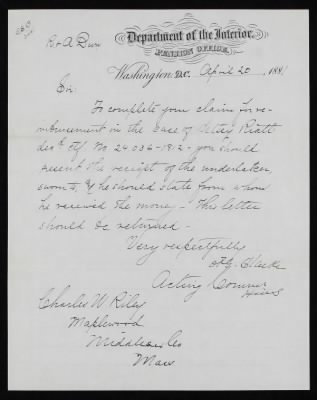 R & A Div
Department of the Interior,
PENSION OFFICE,
Washington, D.C. April 20, 188
Sir:
To complete your claim for re-
imbursement in the case of
No 24036-1812- you should
present the receipt of the undertaker,
sworn to, & he should state from whom
he received the money - This letter
should be returned -
Very respectfully
Acting Commr
Charles W Riley
Maplewood
Middlesex Co
Mass